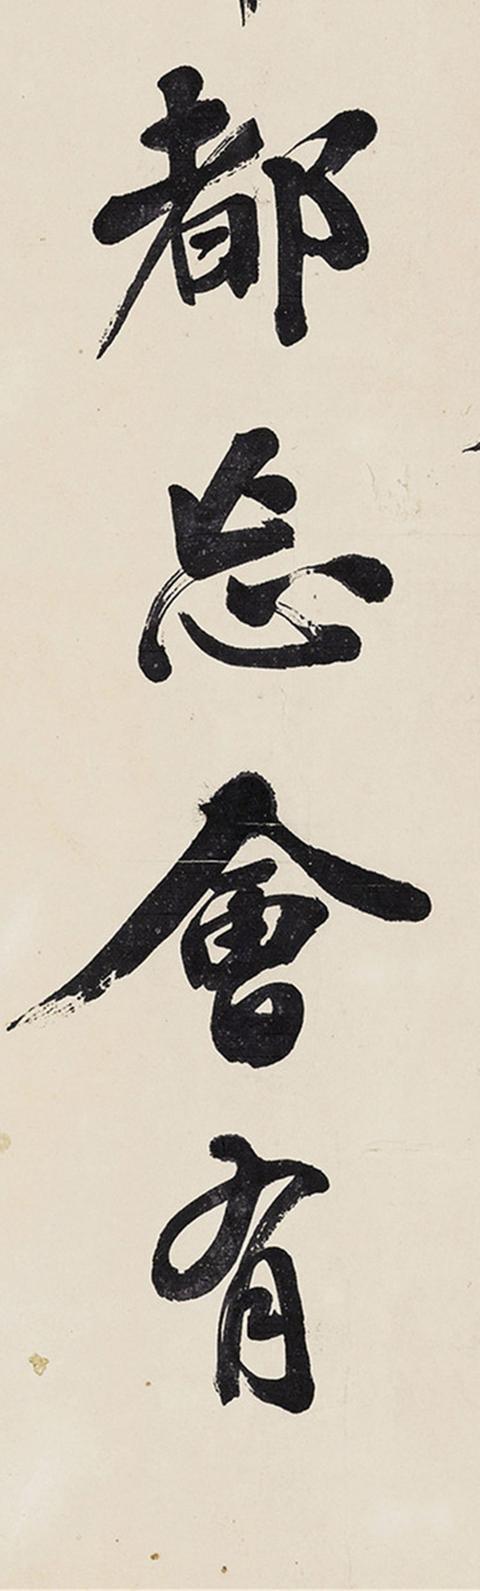 都忘會有